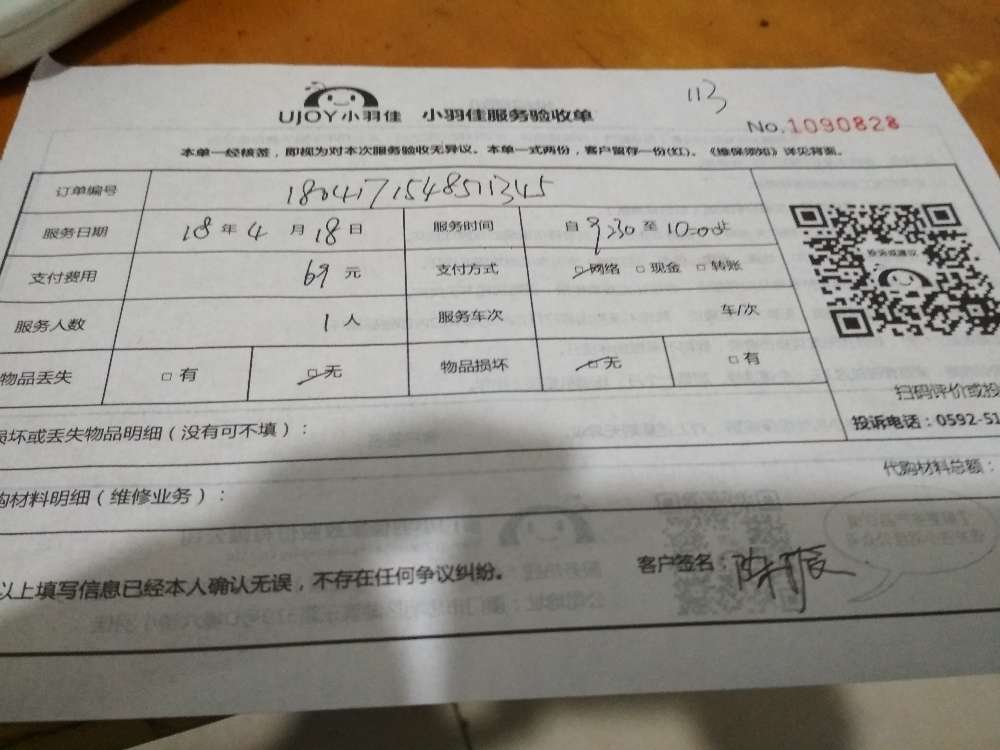 113
UJOY小羽佳 小羽佳服务验收单
No.1090828
本单一经核签，即视为对本次服务验收无异议。本单一式两份，客户留存一份(红)。《维保须知》详见背面。
订单编号 180417154851345
服务日期 18年4月18日 服务时间 自9:30至10:00止
支付费用 69元 支付方式 网络 现金 转账
服务人数 1人 服务车次 车/次
物品丢失 有 无 物品损坏 无 有
投诉或建议
扫码评价或投
投诉电话：0592-51
损坏或丢失物品明细（没有可不填）：
代购材料总额：
购材料明细（维修业务）：
以上填写信息已经本人确认无误，不存在任何争议纠纷。
客户签名：